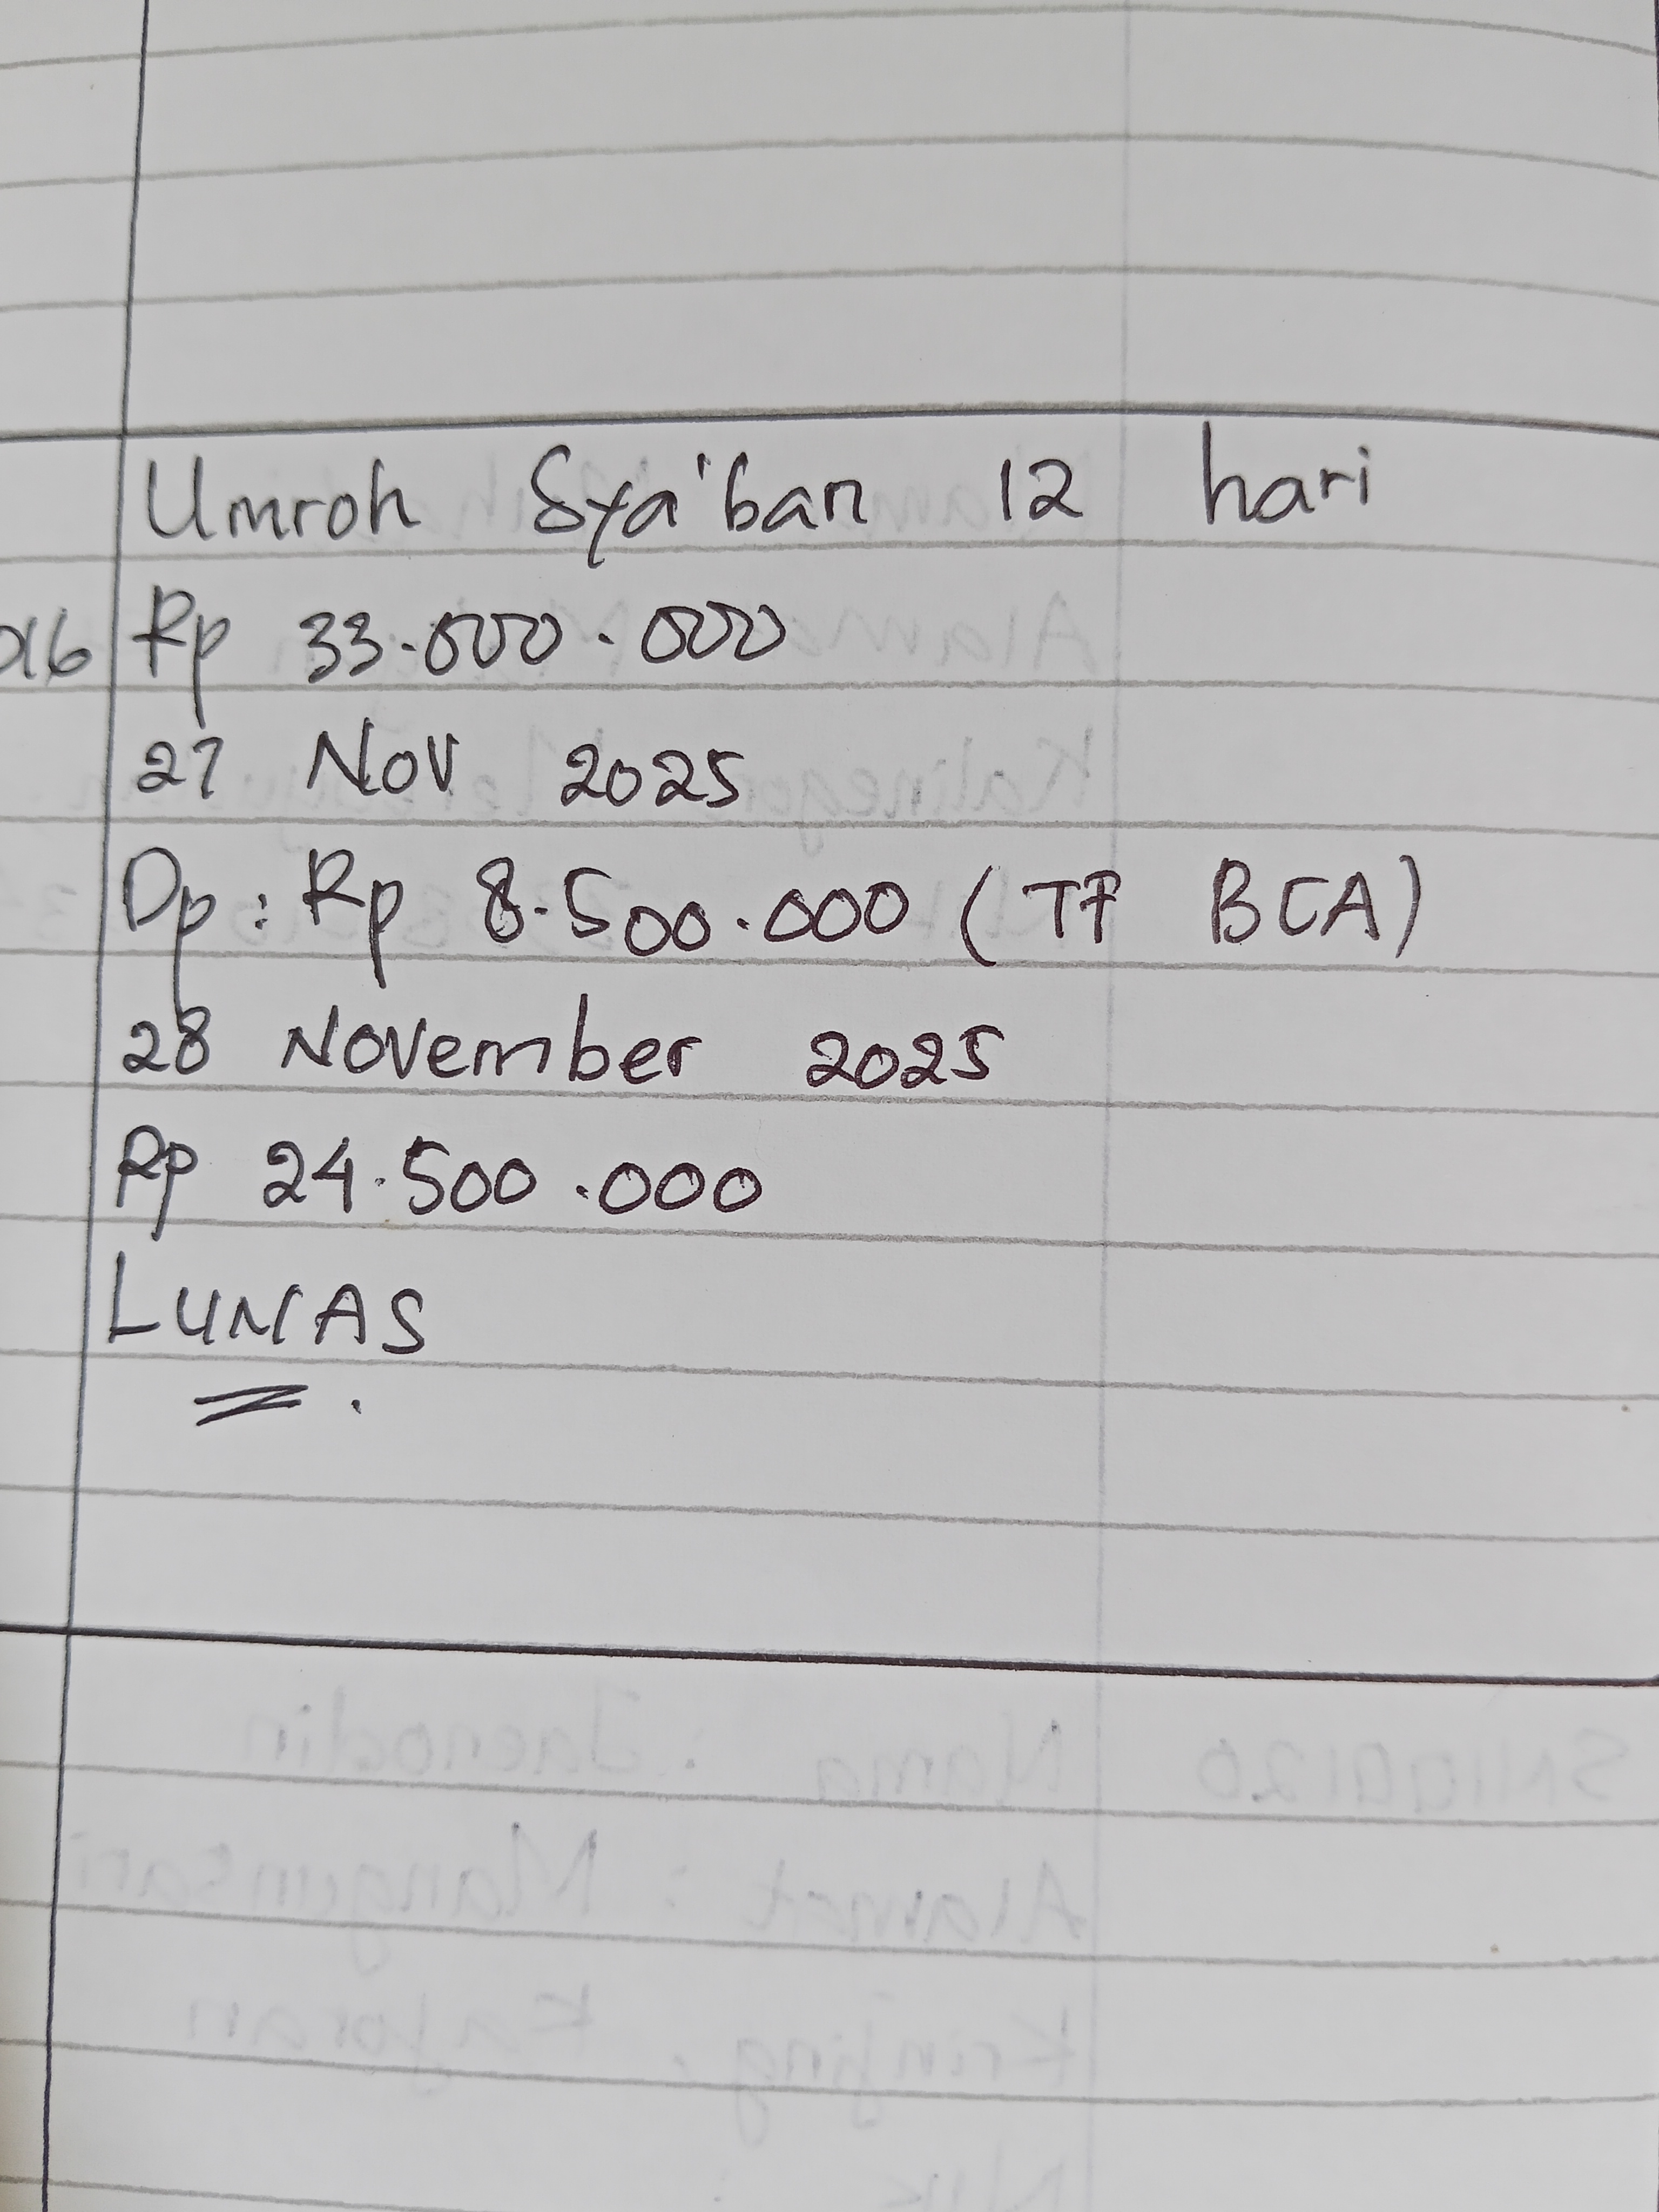 Umroh Sya'ban 12 hari
Rp 33.000.000
27 Nov 2025
Dp : Rp 8.500.000 (TF BCA)
28 November 2025
Rp 24.500.000
LUNAS